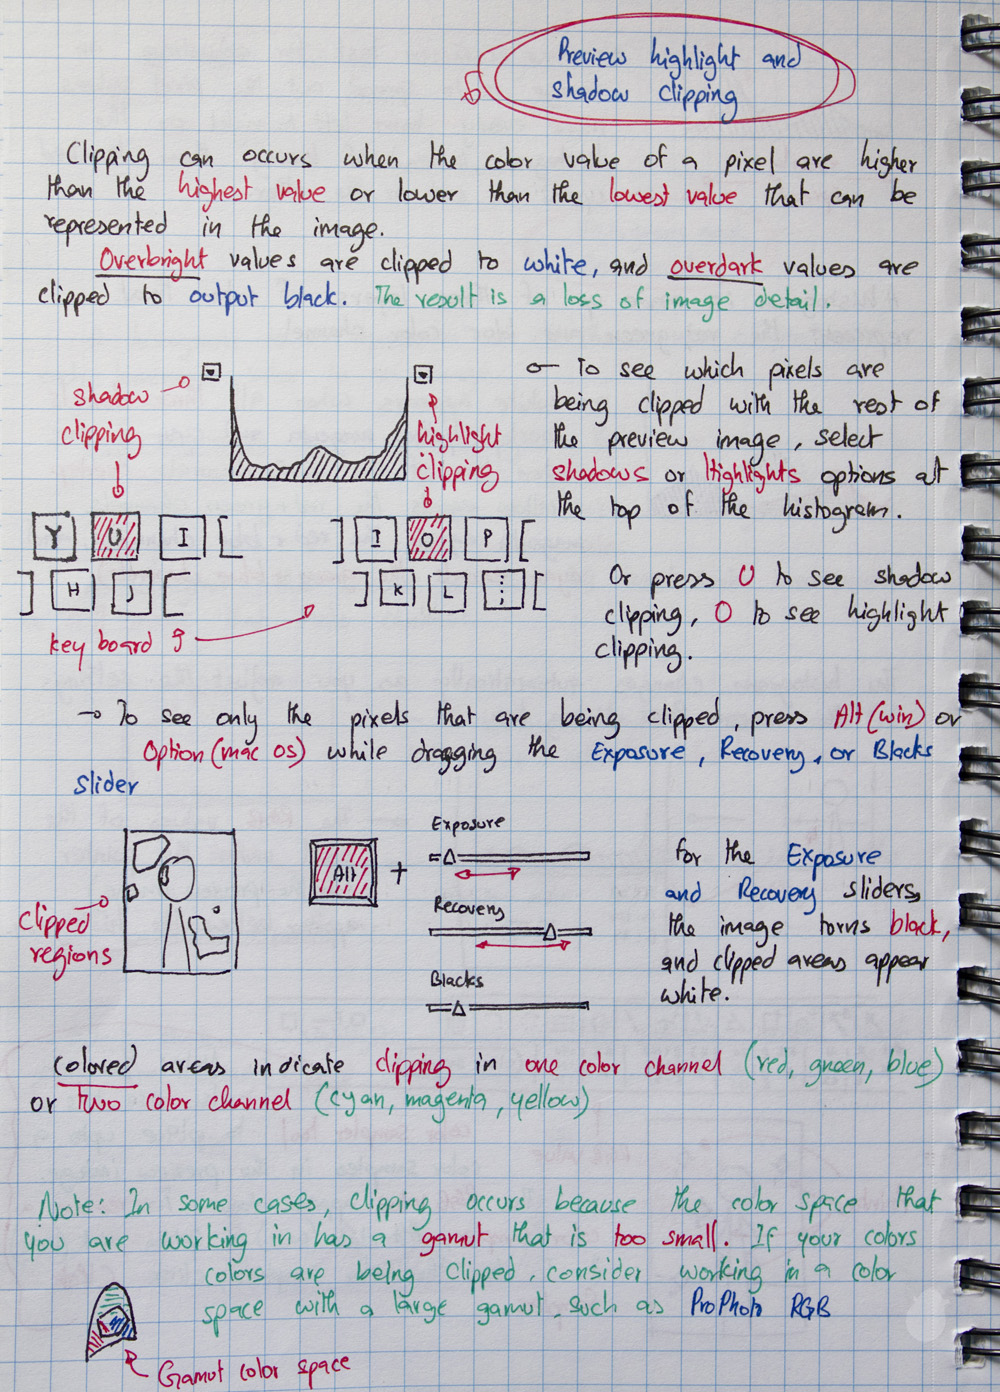 Preview highlight and
shadow clipping
Clipping can occurs when the color value of a pixel are higher
than the highest value or lower than the lowest value that can be
represented in the image.
Overbright values are clipped to white, and overdark values are
clipped to output black. The result is a loss of image detail.
shadow
clipping
highlight
clipping
To see which pixels are
being clipped with the rest of
the preview image, select
shadows or Highlights options at
the top of the histogram.
Y U I
H J
I O P
K L ;
key board
Or press U to see shadow
clipping, O to see highlight
clipping.
→ To see only the pixels that are being clipped, press Alt (win) or
Option (mac os) while dragging the Exposure, Recovery, or Blacks
Slider
clipped
regions
Alt +
Exposure
Recovery
Blacks
for the Exposure
and Recovery sliders,
the image torns black,
and clipped areas appear
white.
Colored areas indicate clipping in one color channel (red, green, blue)
or two color channel (cyan, magenta, yellow)
Note: In some cases, clipping occurs because the color space that
you are working in has a gamut that is too small. If your colors
colors are being clipped, consider working in a color
space with a large gamut, such as ProPhoto RGB
Gamut color space